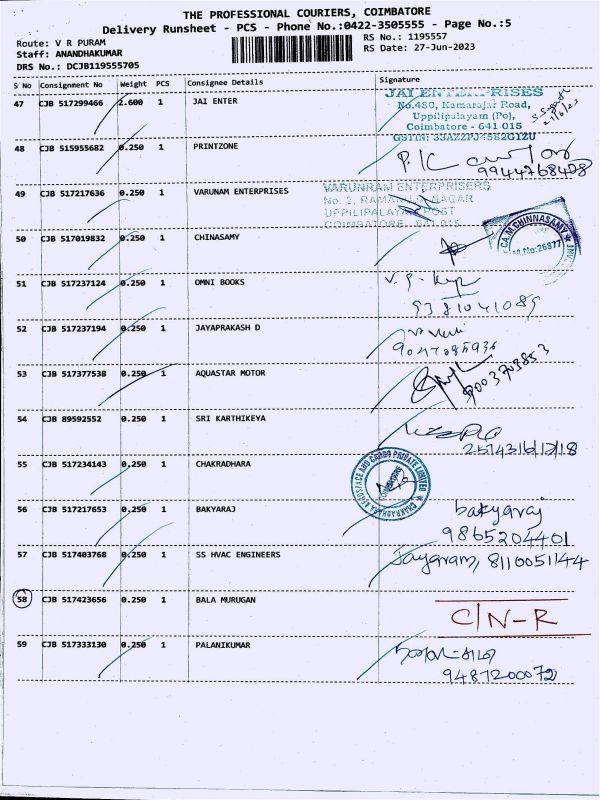 THE PROFESSIONAL COURIERS, COIMBATORE
Delivery Runsheet - PCS - Phone No.:0422-3505555 - Page No.:5
Route: V R PURAM
RS No.: 1195557
Staff: ANANDHAKUMAR
RS Date: 27-Jun-2023
DRS No.: DCJB119555705
S No Consignment No Weight PCS Consignee Details Signature
47 CJB 517299466 2.600 1 JAI ENTER
JAI ENTERPRISES
No.480, Kamarajar Road,
Uppilipalayam (Po),
Coimbatore - 641 015
48 CJB 515955682 0.250 1 PRINTZONE
9944768408
49 CJB 517217636 0.250 1 VARUNAM ENTERPRISES
VARUNRAM ENTERPRISERS
UPPILIPALAYAM POST
COIMBATORE - 641 015
50 CJB 517019832 0.250 1 CHINASAMY
CA.M.CHINNASAMY
51 CJB 517237124 0.250 1 OMNI BOOKS
52 CJB 517237194 0.250 1 JAYAPRAKASH D
53 CJB 517377538 0.250 1 AQUASTAR MOTOR
54 CJB 89592552 0.250 1 SRI KARTHIKEYA
55 CJB 517234143 0.250 1 CHAKRADHARA
CHAKRADHARA AEROSPACE AND CARGO PRIVATE LIMITED
56 CJB 517217653 0.250 1 BAKYARAJ
bakyaraj
9865204401
57 CJB 517403768 0.250 1 SS HVAC ENGINEERS
Jayaram, 8110051144
58 CJB 517423656 0.250 1 BALA MURUGAN
C/N-R
59 CJB 517333130 0.250 1 PALANIKUMAR
9487200072